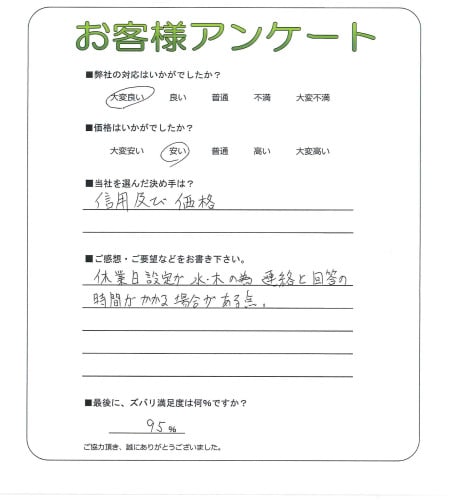 お客様アンケート
■弊社の対応はいかがでしたか？
大変良い 良い 普通 不満 大変不満
■価格はいかがでしたか？
大変安い 安い 普通 高い 大変高い
■当社を選んだ決め手は？
信用及び 価格
■ご感想・ご要望などをお書き下さい。
休業日設定が 水・木の為 連絡と回答の
時間がかかる場合がある点。
■最後に、ズバリ満足度は何%ですか？
95%
ご協力頂き、誠にありがとうございました。